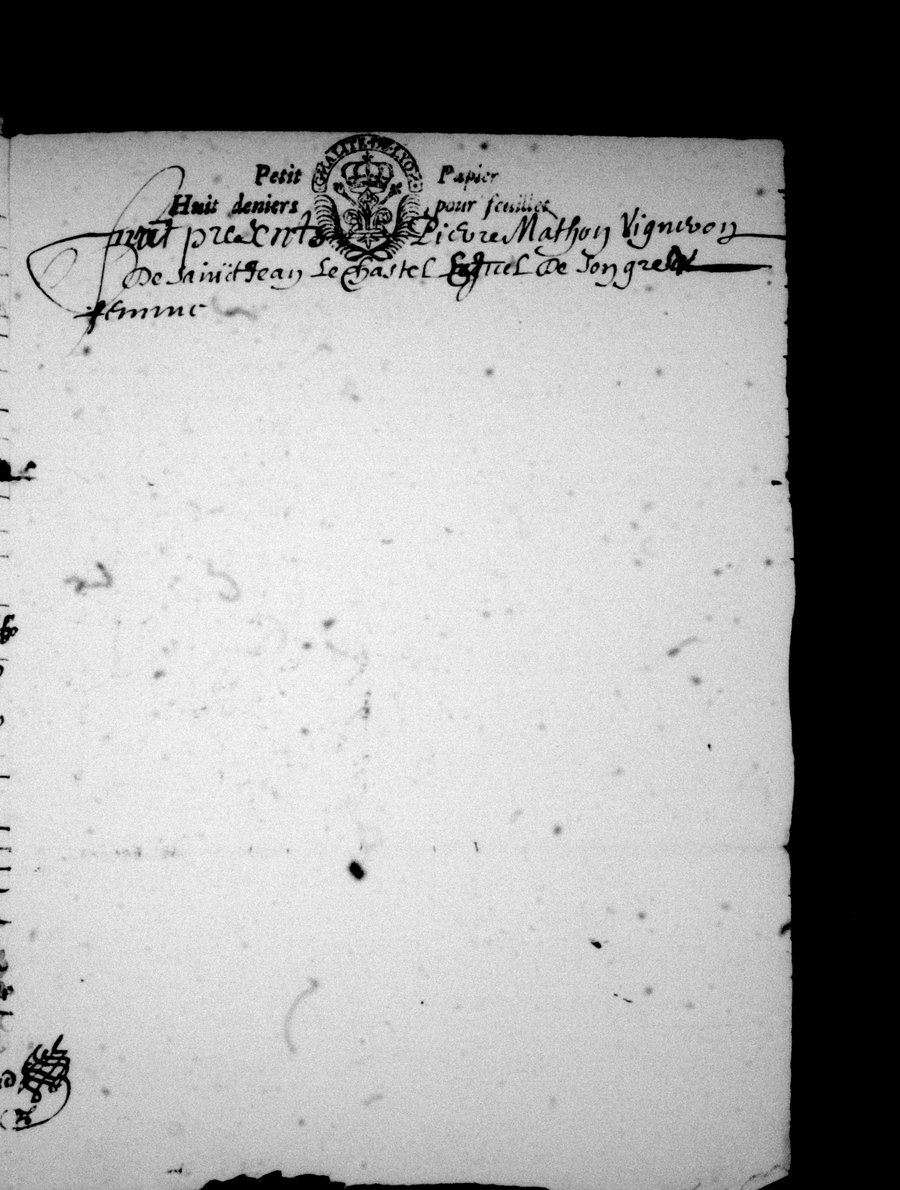 GNALITE DE LYO
Petit Papier
Huit deniers pour feuillet
furent presents Pierre Mathon Vigneron
De sainct Jean Le Chastel Lequel De son gre
femme